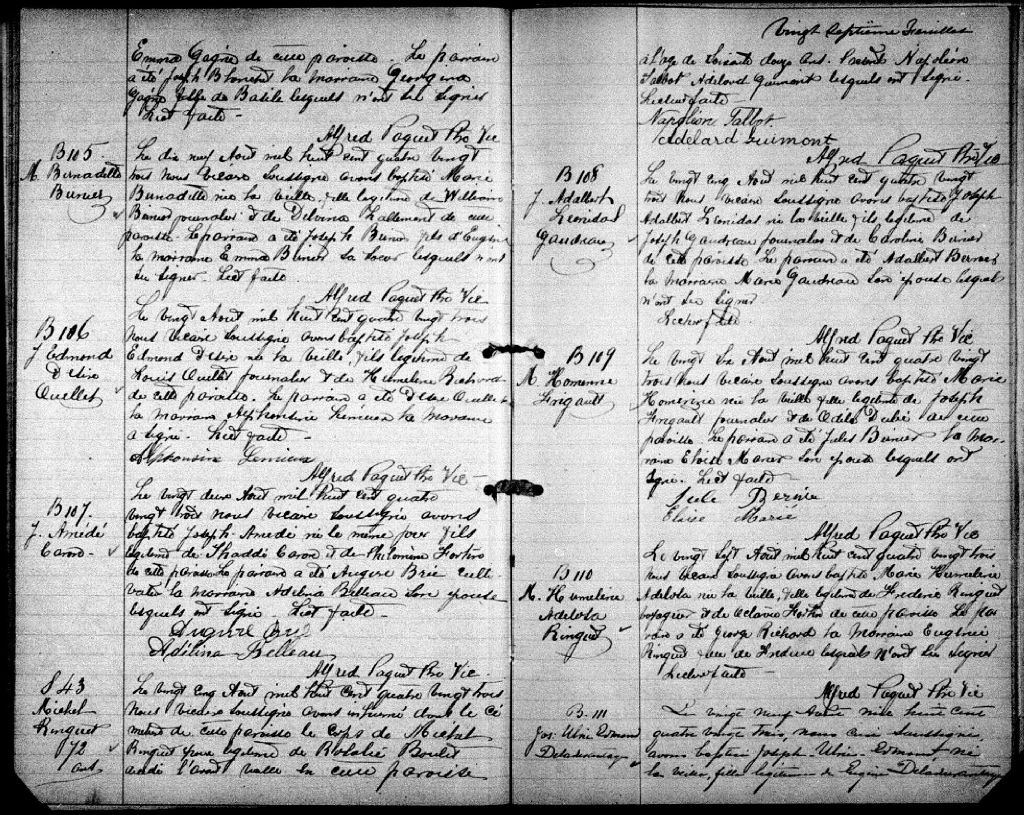 Emma Gagné de cette paroisse. Le parrain
a été Joseph Blanchet la marraine Georgina
Gagné fille de Basile lesquels n'ont su signer
Lect faite -
Alfred Paquet Ptre Vic
B105
M. Bernadette
Bernier
Le dix neuf Aout mil huit cent quatre vingt
trois nous vicaire soussigné avons baptisé Marie
Bernadette née la veille, fille legitime de William
Bernier journalier et de Delvina Lallement de cette
paroisse. Le parrain a été Joseph Bernier fils d'Eugène
la marraine Emma Bernier sa soeur lesquels n'ont
su signer. Lect faite
Alfred Paquet Ptre Vic
B106
J. Edmond
Désiré
Ouellet
Le vingt Aout mil huit cent quatre vingt trois
nous vicaire soussigné avons baptisé Joseph
Edmond Désiré né la veille, fils legitime de
Louis Ouellet journalier et de Humeline
de cette paroisse. Le parrain a été Désiré Ouellet
la marraine Alphonsine Lemieux la marraine
a signé. Lect faite -
Alphonsine Lemieux
Alfred Paquet Ptre Vic
B107.
J. Amédé
Caron -
Le vingt deux Aout mil huit cent quatre
vingt trois nous vicaire soussigné avons
baptisé Joseph Amédé né le même jour fils
legitime de Thaddé Caron et de Philomène Fortin
de cette paroisse Le parrain a été Augure Brie culti-
vateur la marraine Adelina Belleau son épouse
lesquels ont signé. Lect faite -
Augure Brie
Adélina Belleau
Alfred Paquet Ptre Vic
S 43
Michel
Ringuet
72
ans
Le vingt cinq Aout mil huit cent quatre vingt trois
nous vicaire soussigné avons inhumé dans le ci-
metière de cette paroisse le corps de Michel
Ringuet époux legitime de Rosalie Boulet
décédé l'avant veille en cette paroisse
Vingt Septième Feuillet
à l'age de soixante douze ans. Présents Napoléon
Talbot Adelard Guimont lesquels ont signé.
Lecture faite -
Napoléon Talbot
Adélard Guimont
Alfred Paquet Ptre Vic
B108
J. Adalbert
Leonidas
Gaudreau
Le vingt cinq Aout mil huit cent quatre vingt
trois nous vicaire soussigné avons baptisé Joseph
Adalbert Leonidas né la veille, fils legitime de
Joseph Gaudreau journalier et de Caroline Bernier
de cette paroisse. Le parrain a été Adalbert Bernier
la marraine Marie Gaudreau son épouse lesquels
n'ont su signer
Lecture faite.
Alfred Paquet Ptre Vic
B109
M. Homerine
Fregault
Le vingt six Aout mil huit cent quatre vingt
trois nous vicaire soussigné avons baptisé Marie
Homerine née la veille fille legitime de Joseph
Fregault journalier et de Odile Dubé de cette
paroisse. Le parrain a été Jules Bernier la mar-
raine Eloise Marier son épouse lesquels ont
signé. Lect faite -
Jule Bernie
Eloise Marié
Alfred Paquet Ptre Vic
B110
M. Humelerie
Adelola
Ringuet
Le vingt sept Aout mil huit cent quatre vingt trois
nous vicaire soussigné avons baptisé Marie Humelerie
Adelola née la veille, fille legitime de Frederic Ringuet
voyageur et de Octavie Fortin de cette paroisse Le par-
rain a été George Richard la marraine Eugénie
Ringuet lesquels n'ont su signer
Lecture faite -
Alfred Paquet Ptre Vic
B. 111
Jos: Ulric Edmond
Deladurantaye
Le vingt neuf Aout mil huit cent
quatre vingt trois, nous curé soussigné,
avons baptisé Joseph Ulric Edmont né
la veille, fils légitime de Eugène Deladurantaye